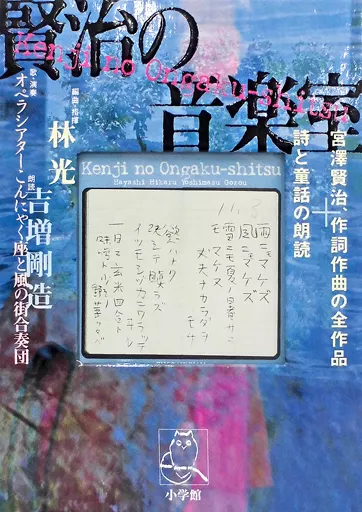 賢治の
音楽室
Kenji no Ongaku-shitsu
宮澤賢治、作詞作曲の全作品
+
詩と童話の朗読
編曲・指揮
林光
朗読
吉増剛造
歌・演奏
オペラシアターこんにゃく座と風の街合奏団
Kenji no Ongaku-shitsu
Hayashi Hikaru Yoshimasu Gozou
11.3.
雨ニモマケズ
風ニモマケズ
雪ニモ夏ノ暑サニモ
マケヌ
丈夫ナカラダヲ
モチ
慾ハナク
決シテ瞋ラズ
イツモシヅカニワラッテ
ヰル
一日ニ玄米四合ト
味噌ト少シノ野菜ヲタベ
小学館